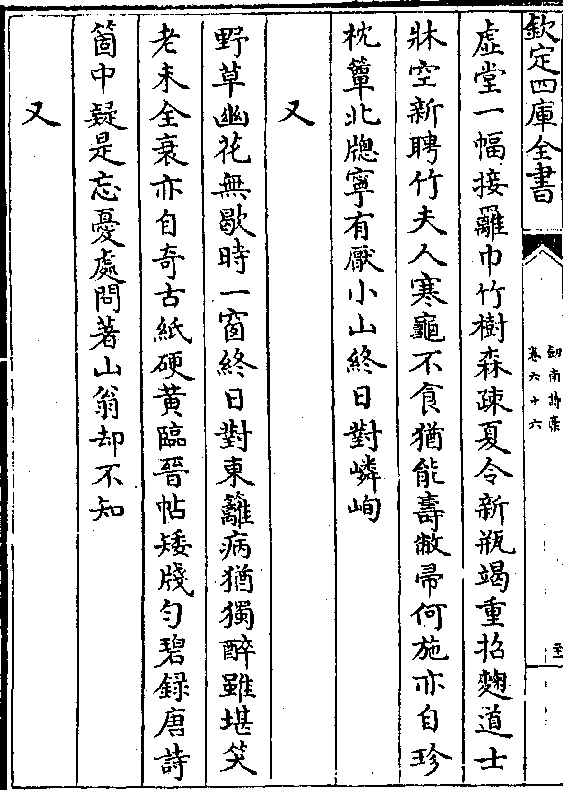 欽定四庫全書
劍南詩槀
卷六十六
虚堂一幅接䍦巾竹樹森疎夏令新瓶竭重招麴道士
牀空新聘竹夫人寒龜不食猶能壽敝帚何施亦自珍
枕簟北牕寧有厭小山終日對嶙峋
又
野草幽花無歇時一窗終日對東籬病猶獨醉雖堪笑
老未全衰亦自奇古紙硬黄臨晉帖矮牋匀碧錄唐詩
箇中疑是忘憂處問著山翁却不知
又